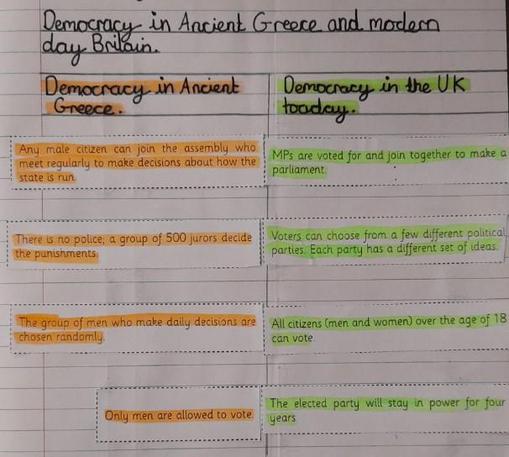 Democracy in Ancient Greece and modern
day Britain.
Democracy in Ancient
Greece.
Democracy in the UK
tooday.
Any male citizen can join the assembly who
meet regularly to make decisions about how the
state is run.
MPs are voted for and join together to make a
parliament.
There is no police; a group of 500 jurors decide
the punishments.
Voters can choose from a few different political
parties. Each party has a different set of ideas.
The group of men who make daily decisions are
chosen randomly.
All citizens (men and women) over the age of 18
can vote.
Only men are allowed to vote.
The elected party will stay in power for four
years